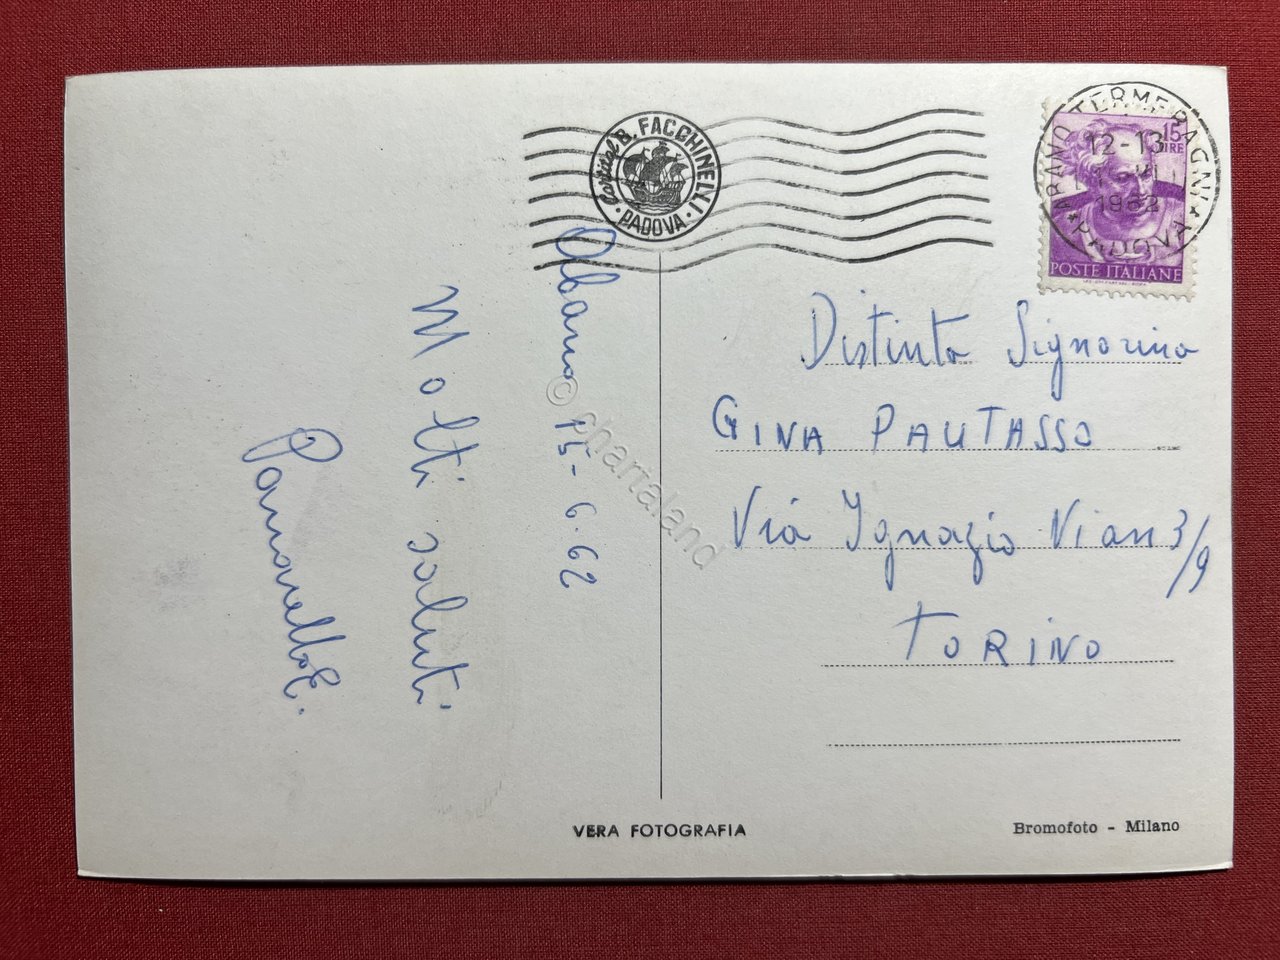 Cartival B. FACCHINELLI
· PADOVA ·
15
LIRE
POSTE ITALIANE
ABANO TERME
12-13
1962
* PADOVA *
Abano 15-6-62
Molti saluti
Distinta Signorina
GINA PAUTASSO
Via Ignazio Vian 3/9
TORINO
VERA FOTOGRAFIA
Bromofoto - Milano
© chartaland